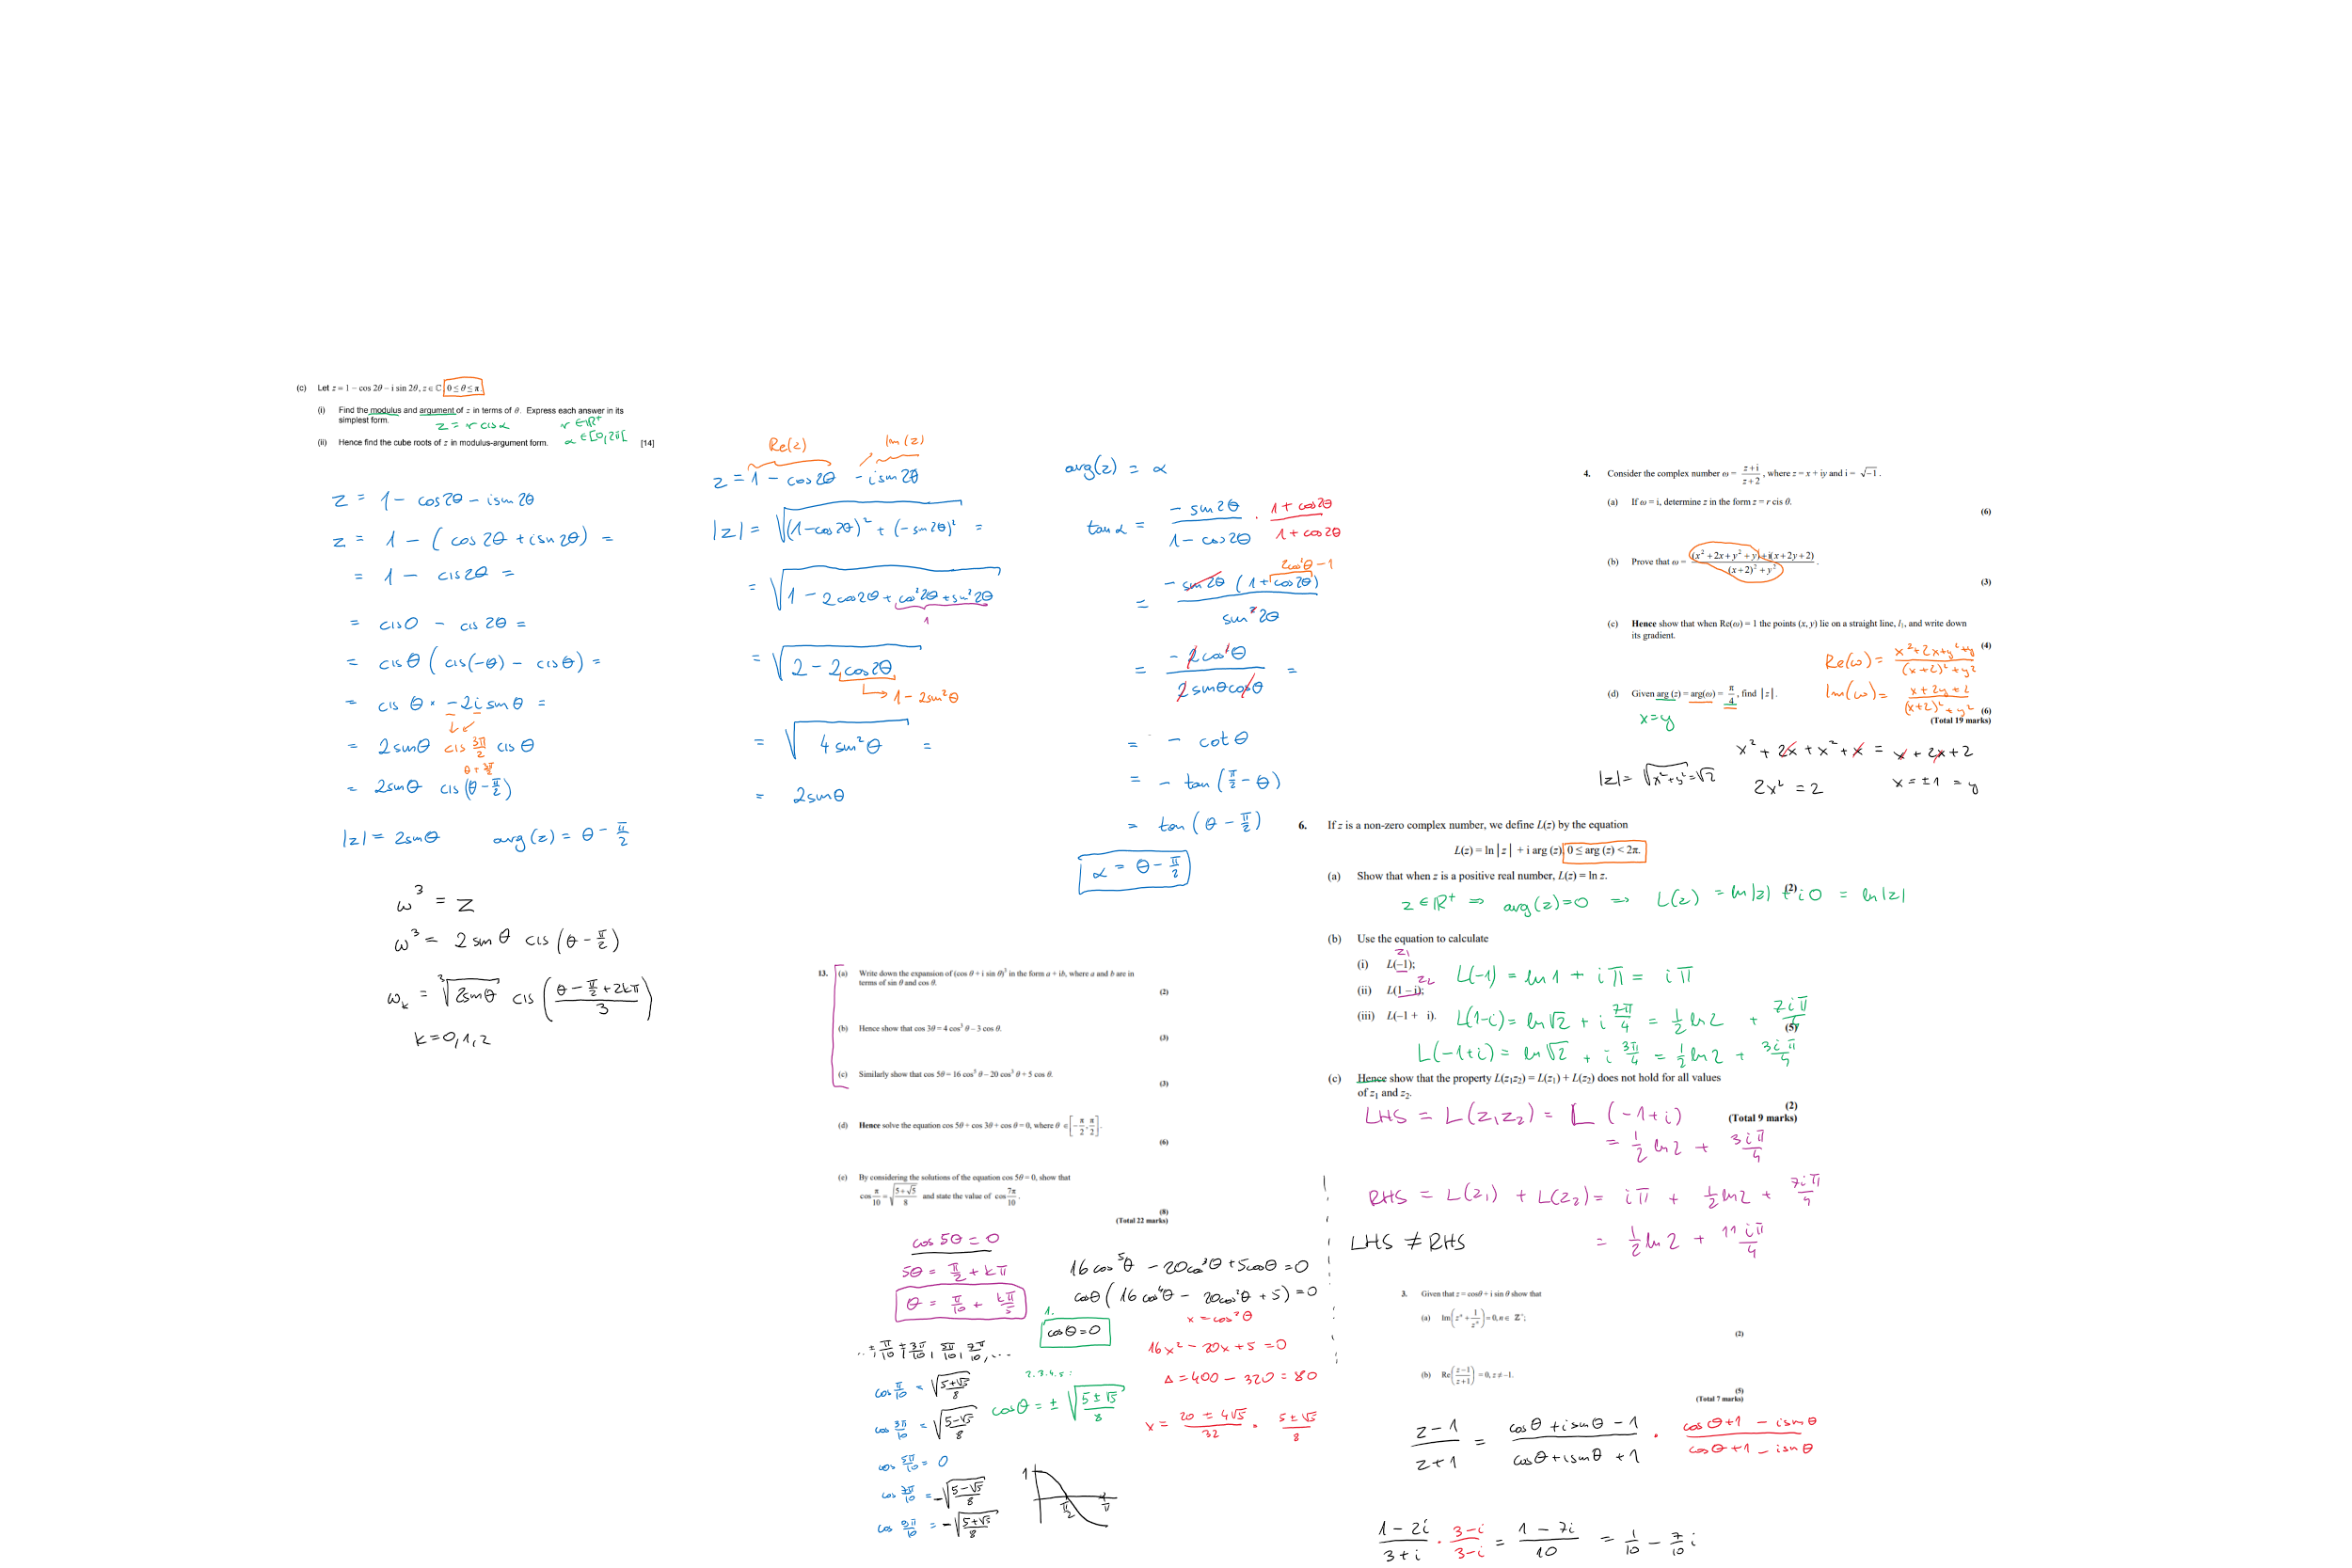 (c) Let z = 1 − cos 2θ − i sin 2θ, z ∈ ℂ, 0 ≤ θ ≤ π.
(i) Find the modulus and argument of z in terms of θ. Express each answer in its
simplest form.
z = r cis α r ∈ ℝ⁺
(ii) Hence find the cube roots of z in modulus-argument form. α ∈ [0, 2π[ [14]
z = 1 − cos2θ − isin2θ
z = 1 − (cos2θ + isin2θ) =
= 1 − cis2θ =
= cis0 − cis2θ =
= cisθ (cis(−θ) − cisθ) =
= cisθ · −2isinθ =
= 2sinθ cis 3π/2 cisθ
θ + 3π/2
= 2sinθ cis(θ − π/2)
|z| = 2sinθ arg(z) = θ − π/2
ω³ = z
ω³ = 2sinθ cis(θ − π/2)
ωₖ = ³√(2sinθ) cis((θ − π/2 + 2kπ)/3)
k = 0,1,2
Re(z) Im(z)
z = 1 − cos2θ − isin2θ
|z| = √((1−cos2θ)² + (−sin2θ)²) =
= √(1 − 2cos2θ + cos²2θ + sin²2θ)
1
= √(2 − 2cos2θ)
↳ 1 − 2sin²θ
= √(4sin²θ) =
= 2sinθ
arg(z) = α
tanα = (−sin2θ)/(1−cos2θ) · (1+cos2θ)/(1+cos2θ)
2cos²θ−1
= −sin2θ(1+cos2θ)/sin²2θ
= −2cos²θ/(2sinθcosθ) =
= − cotθ
= − tan(π/2 − θ)
= tan(θ − π/2)
α = θ − π/2
4. Consider the complex number ω = (z+i)/(z+2), where z = x + iy and i = √−1.
(a) If ω = i, determine z in the form z = r cis θ.
(6)
(b) Prove that ω = ((x² + 2x + y² + y) + i(x + 2y + 2))/((x+2)² + y²).
(3)
(c) Hence show that when Re(ω) = 1 the points (x, y) lie on a straight line, l₁, and write down
its gradient.
(4)
Re(ω) = (x²+2x+y²+y)/((x+2)²+y²)
(d) Given arg (z) = arg(ω) = π/4, find |z|.
Im(ω) = (x+2y+2)/((x+2)²+y²)
(6)
(Total 19 marks)
x=y
x² + 2x + x² + x = x + 2x + 2
|z| = √(x²+y²) = √2
2x² = 2 x = ±1 = y
6. If z is a non-zero complex number, we define L(z) by the equation
L(z) = ln |z| + i arg (z), 0 ≤ arg (z) < 2π.
(a) Show that when z is a positive real number, L(z) = ln z.
(2)
z ∈ ℝ⁺ ⇒ arg(z)=0 ⇒ L(z) = ln|z| + i0 = ln|z|
(b) Use the equation to calculate
z₁
(i) L(−1);
L(−1) = ln1 + iπ = iπ
z₂
(ii) L(1 − i);
(iii) L(−1 + i).
L(1−i) = ln√2 + i 7π/4 = ½ ln2 + 7iπ/4
(5)
L(−1+i) = ln√2 + i 3π/4 = ½ ln2 + 3iπ/4
(c) Hence show that the property L(z₁z₂) = L(z₁) + L(z₂) does not hold for all values
of z₁ and z₂.
(2)
(Total 9 marks)
LHS = L(z₁z₂) = L(−1+i)
= ½ ln2 + 3iπ/4
RHS = L(z₁) + L(z₂) = iπ + ½ ln2 + 7iπ/4
LHS ≠ RHS = ½ ln2 + 11iπ/4
13. (a) Write down the expansion of (cos θ + i sin θ)³ in the form a + ib, where a and b are in
terms of sin θ and cos θ.
(2)
(b) Hence show that cos 3θ = 4 cos³ θ − 3 cos θ.
(3)
(c) Similarly show that cos 5θ = 16 cos⁵ θ − 20 cos³ θ + 5 cos θ.
(3)
(d) Hence solve the equation cos 5θ + cos 3θ + cos θ = 0, where θ ∈ [−π/2, π/2].
(6)
(e) By considering the solutions of the equation cos 5θ = 0, show that
cos π/10 = √((5+√5)/8) and state the value of cos 7π/10.
(8)
(Total 22 marks)
cos5θ = 0
5θ = π/2 + kπ
θ = π/10 + kπ/5
..., ±π/10, ±3π/10, 5π/10, 7π/10, ...
cos π/10 = √((5+√5)/8)
cos 3π/10 = √((5−√5)/8)
cos 5π/10 = 0
cos 7π/10 = −√((5−√5)/8)
cos 9π/10 = −√((5+√5)/8)
16cos⁵θ − 20cos³θ + 5cosθ = 0
cosθ(16cos⁴θ − 20cos²θ + 5) = 0
1.
cosθ=0
x = cos²θ
16x² − 20x + 5 = 0
Δ = 400 − 320 = 80
x = (20 ± 4√5)/32 = (5±√5)/8
2.3.4.5:
cosθ = ± √((5±√5)/8)
1
π/2 π
3. Given that z = cosθ + i sin θ show that
(a) Im(zⁿ + 1/zⁿ) = 0, n ∈ ℤ⁺;
(2)
(b) Re((z−1)/(z+1)) = 0, z ≠ −1.
(5)
(Total 7 marks)
(z−1)/(z+1) = (cosθ + isinθ − 1)/(cosθ + isinθ + 1) · (cosθ+1 − isinθ)/(cosθ+1 − isinθ)
(1−2i)/(3+i) · (3−i)/(3−i) = (1−7i)/10 = 1/10 − 7/10 i